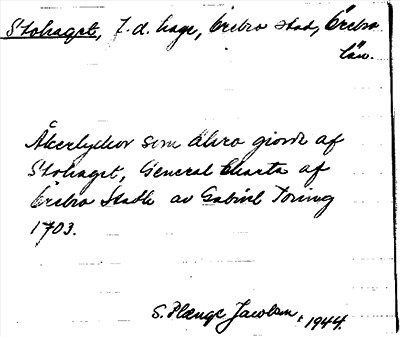 Stohaget, f.d. hage, Örebro stad, Örebro
län.
Åkerlyckor som ähro giorde af
Stohaget, General Charta af
Örebro Stadh av Gabriel Toring
1703.
S. Plænge Jacobson, 1944.